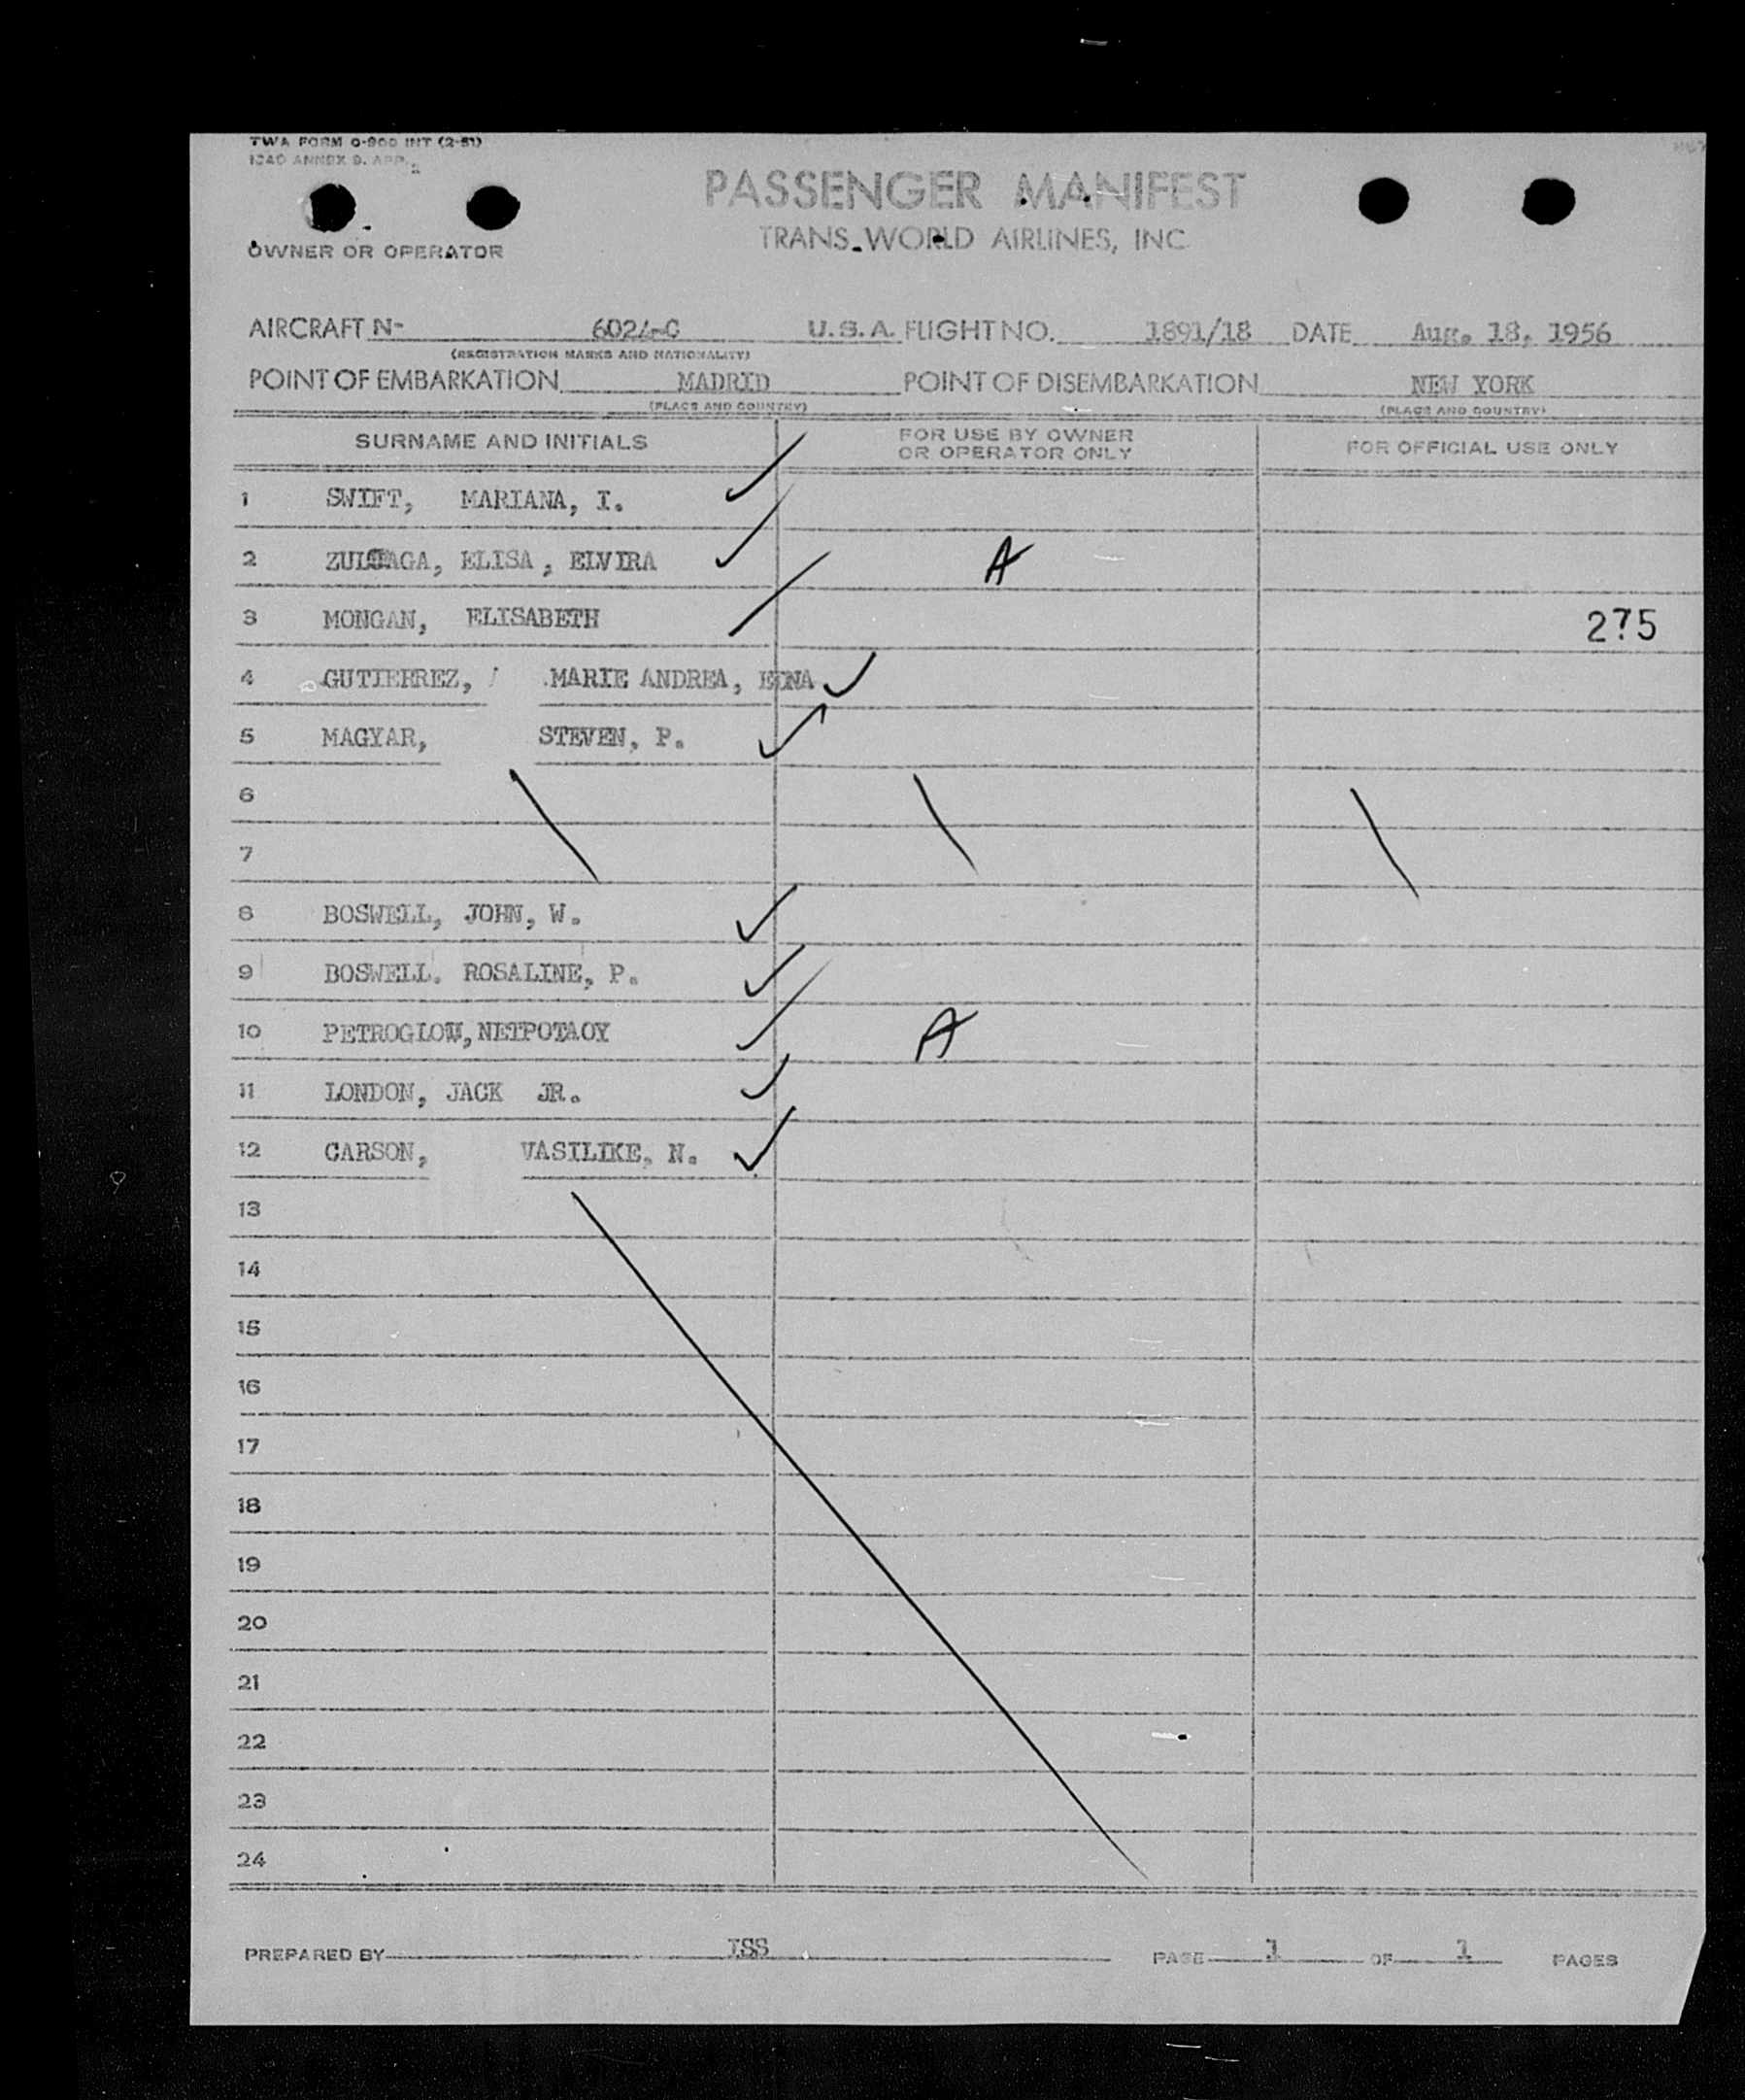 TWA FORM O-900 INT (2-51)
ICAO ANNEX 9. APP. 2
PASSENGER MANIFEST
TRANS WORLD AIRLINES, INC
OWNER OR OPERATOR
AIRCRAFT N- 6024-C U.S.A. FLIGHT NO. 1891/18 DATE Aug. 18, 1956
(REGISTRATION MARKS AND NATIONALITY)
POINT OF EMBARKATION MADRID POINT OF DISEMBARKATION NEW YORK
(PLACE AND COUNTRY) (PLACE AND COUNTRY)
SURNAME AND INITIALS FOR USE BY OWNER OR OPERATOR ONLY FOR OFFICIAL USE ONLY
1 SWIFT, MARIANA, I.
2 ZULOAGA, ELISA, ELVIRA A
3 MONGAN, ELISABETH 275
4 GUTIERREZ, MARIE ANDREA, EDNA
5 MAGYAR, STEVEN, P.
6
7
8 BOSWELL, JOHN, W.
9 BOSWELL. ROSALINE, P.
10 PETROGLOW, NETPOTAOY A
11 LONDON, JACK JR.
12 CARSON, VASILIKE, N.
13
14
15
16
17
18
19
20
21
22
23
24
PREPARED BY ISS PAGE 1 OF 1 PAGES